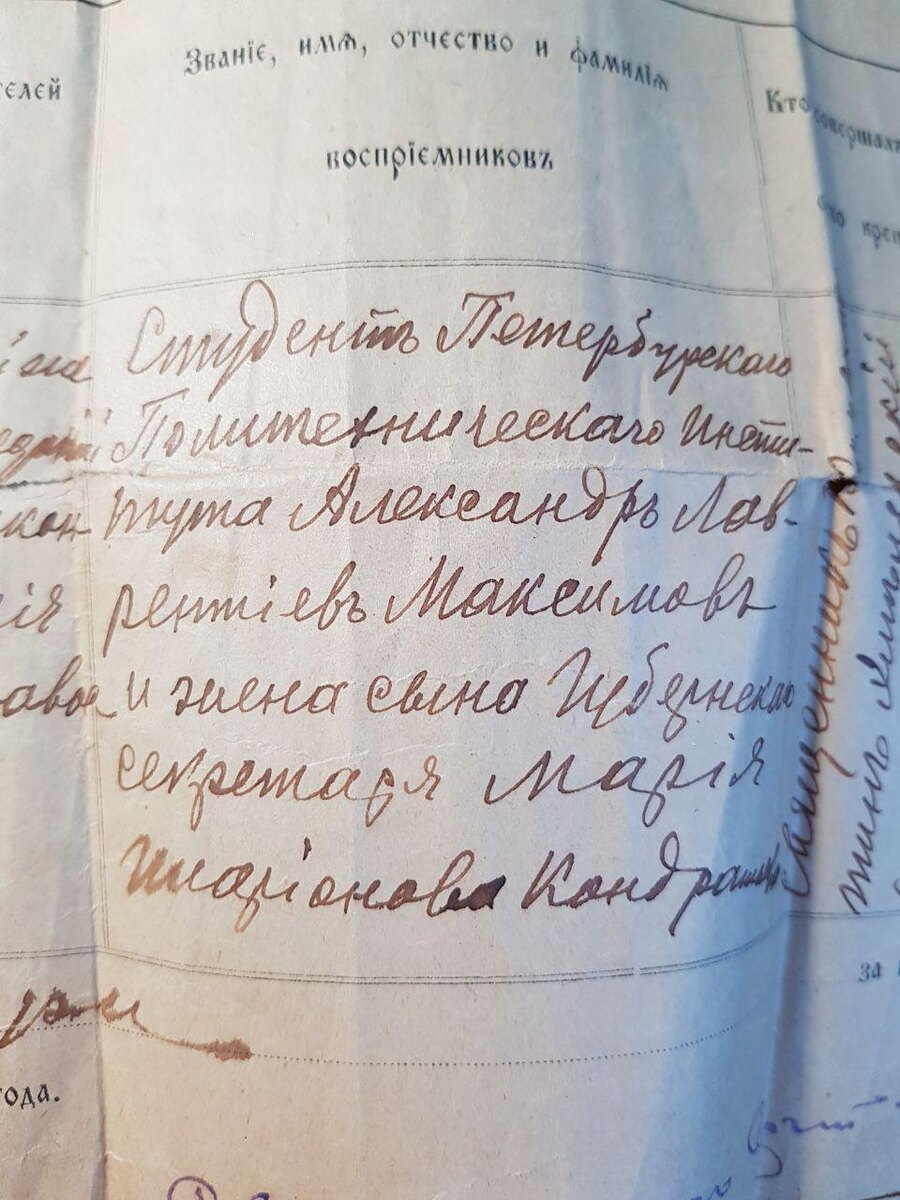 Званіе, имя, отчество и фамилія
воспріемниковъ
телей
Кто совершалъ
Студентъ Петербурскаго
Политехническаго Инсти-
тута Александръ Лав-
рентіевъ Максимовъ
и жена сына Губернскаго
секретаря Марія
Иларіонова Кондрашова
Священникъ
за
года.